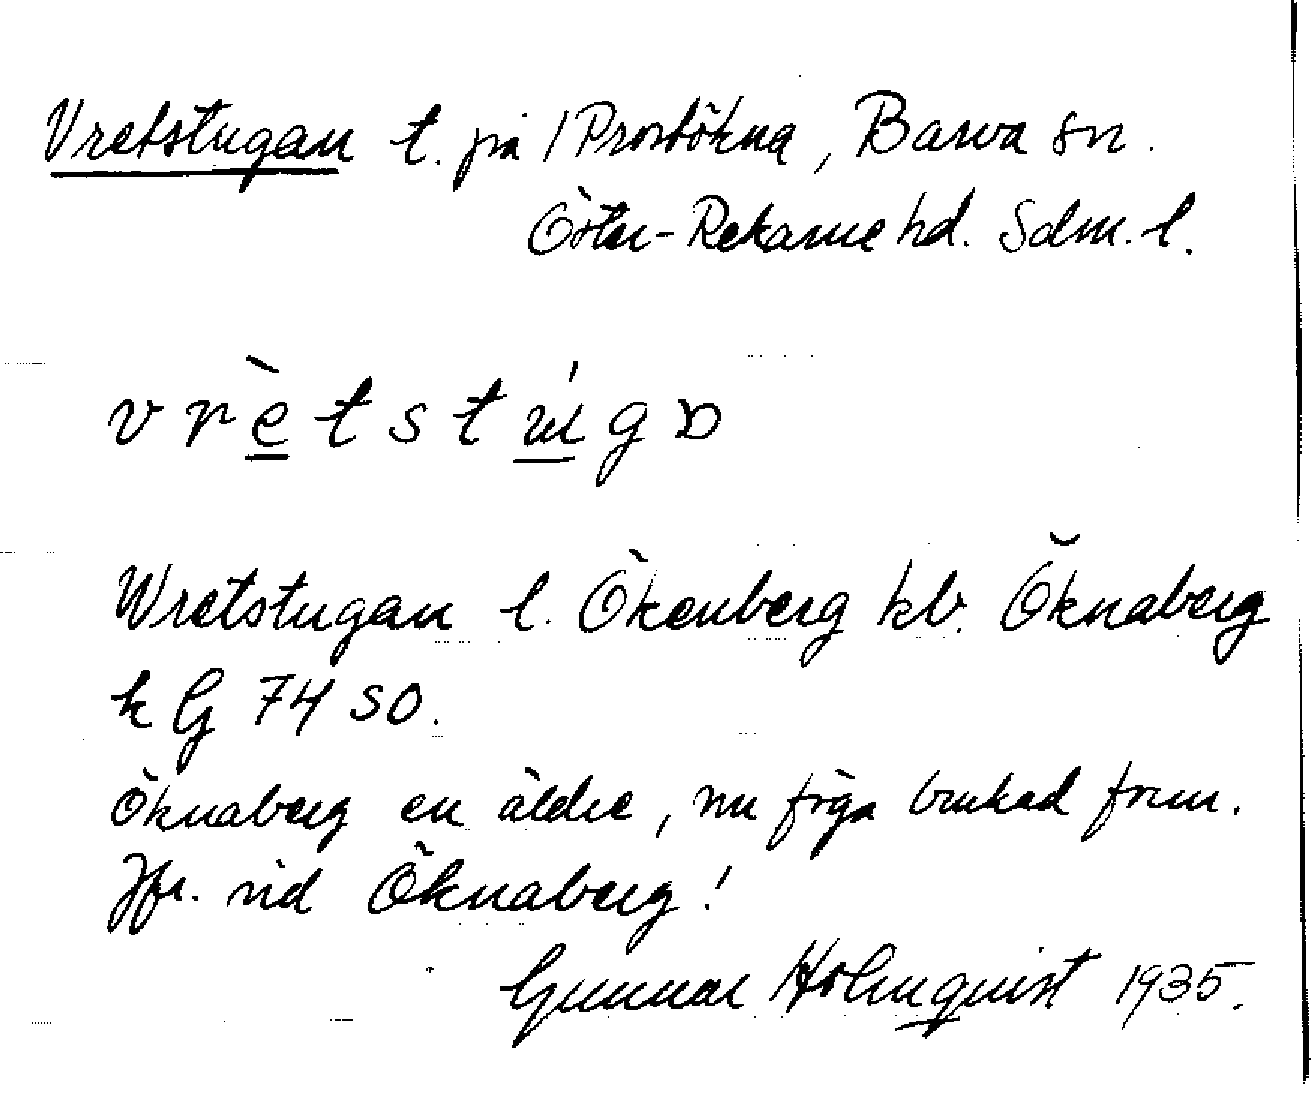 Vretstugan t. på /Prostökna, Barva sn.
Öster-Rekarne hd. Sdm. l.
vrètstúgɒ
Wretstugan l. Ökenberg kb. Öknaberg
k G 74 SO.
Öknaberg en äldre, nu föga brukad form.
Jfr. vid Öknaberg!
Gunnar Holmquist 1935.